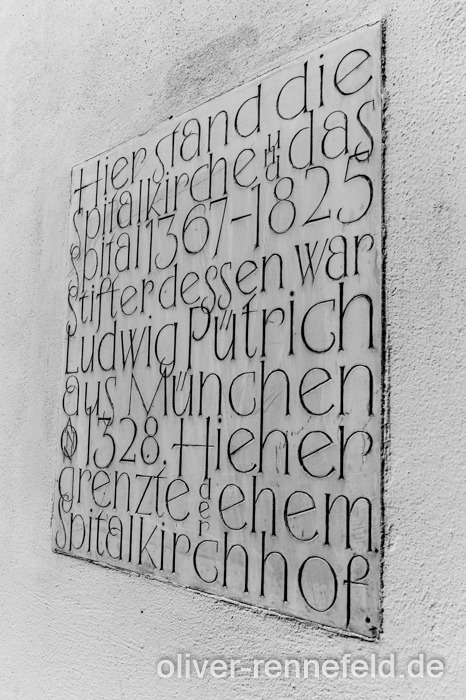 Hier stand die
Spitalkirche und das
Spital 1367-1825
Stifter dessen war
Ludwig Pütrich
aus München
1328. Hieher
grenzte der ehem.
Spitalkirchhof
oliver-rennefeld.de